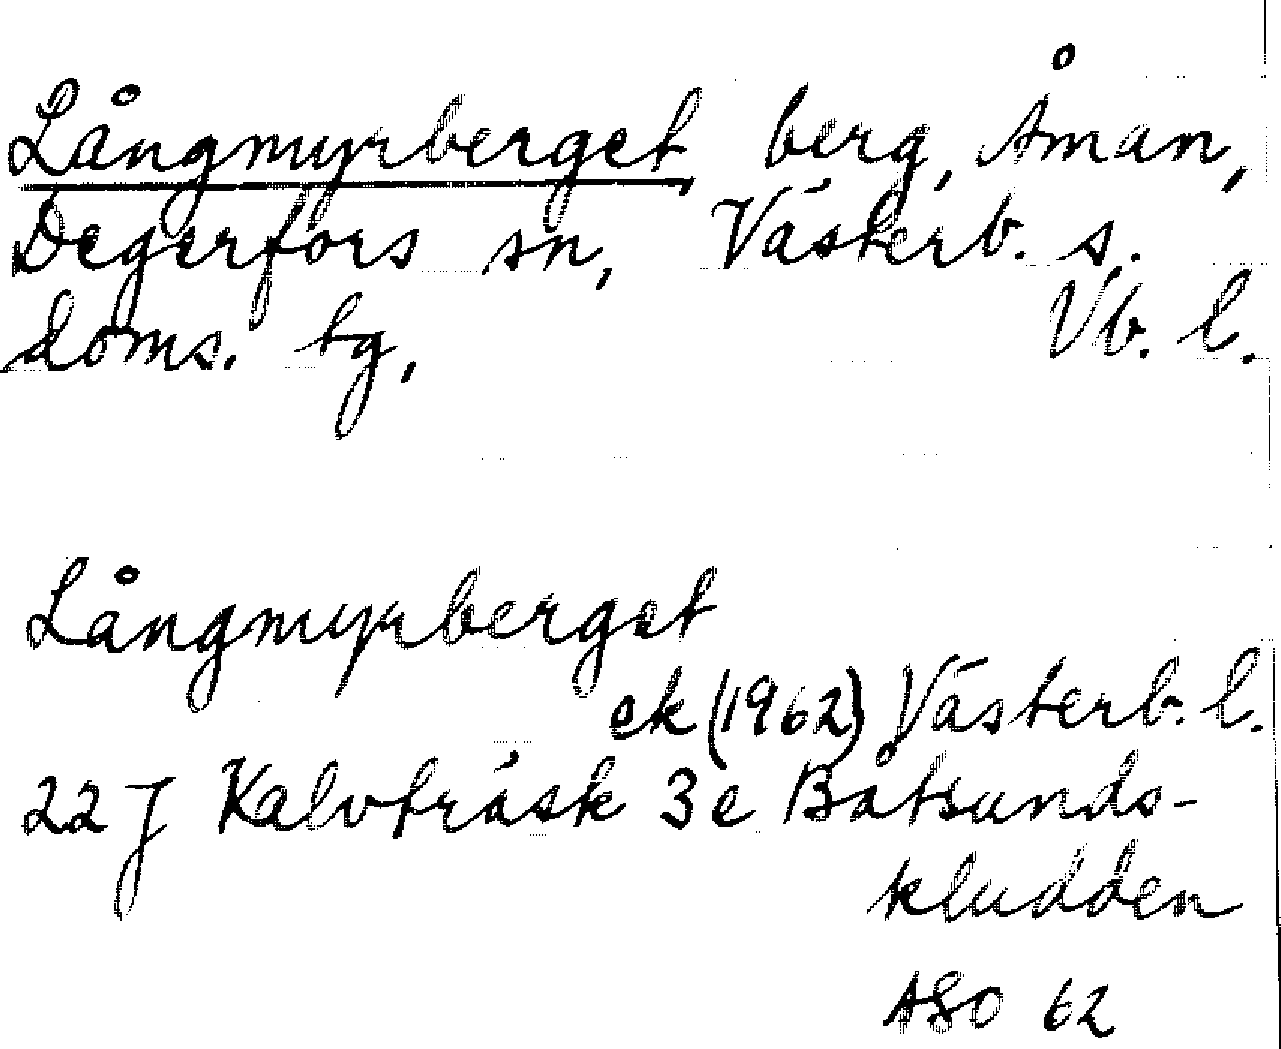 Långmyrberget berg, Åman,
Degerfors sn, Västerb. s.
doms. tg, Vb. l.
Långmyrberget
ek (1962) Västerb. l.
22 J Kalvträsk 3 e Båtsunds-
kludden
ASO 62